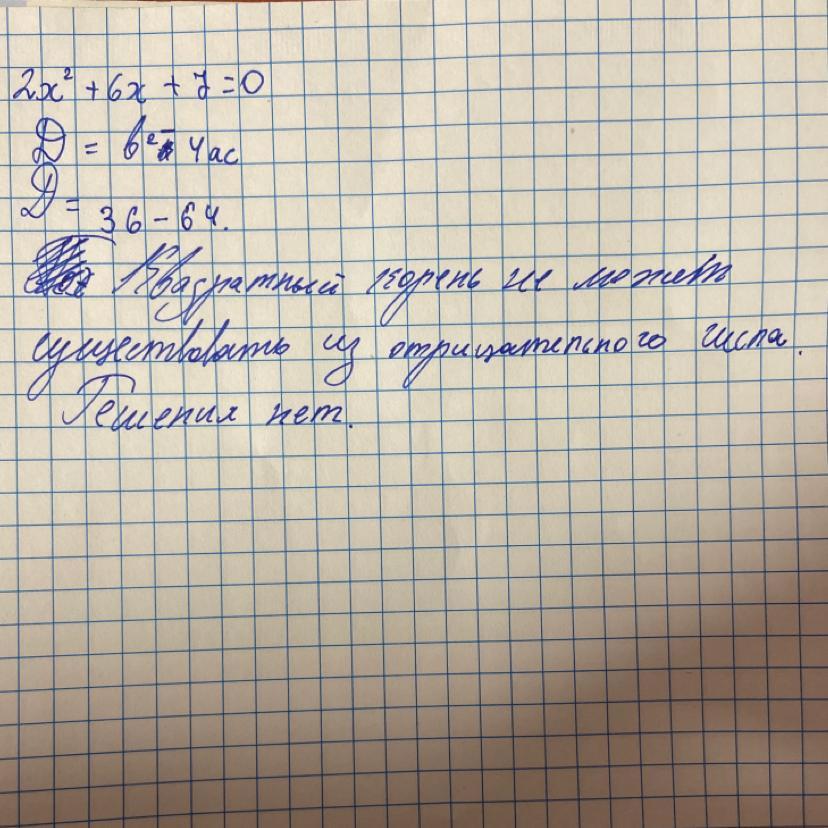 2x² + 6x + 7 = 0
D = b² - 4ac
D = 36 - 64.
Квадратный корень не может
существовать из отрицательного числа.
Решения нет.